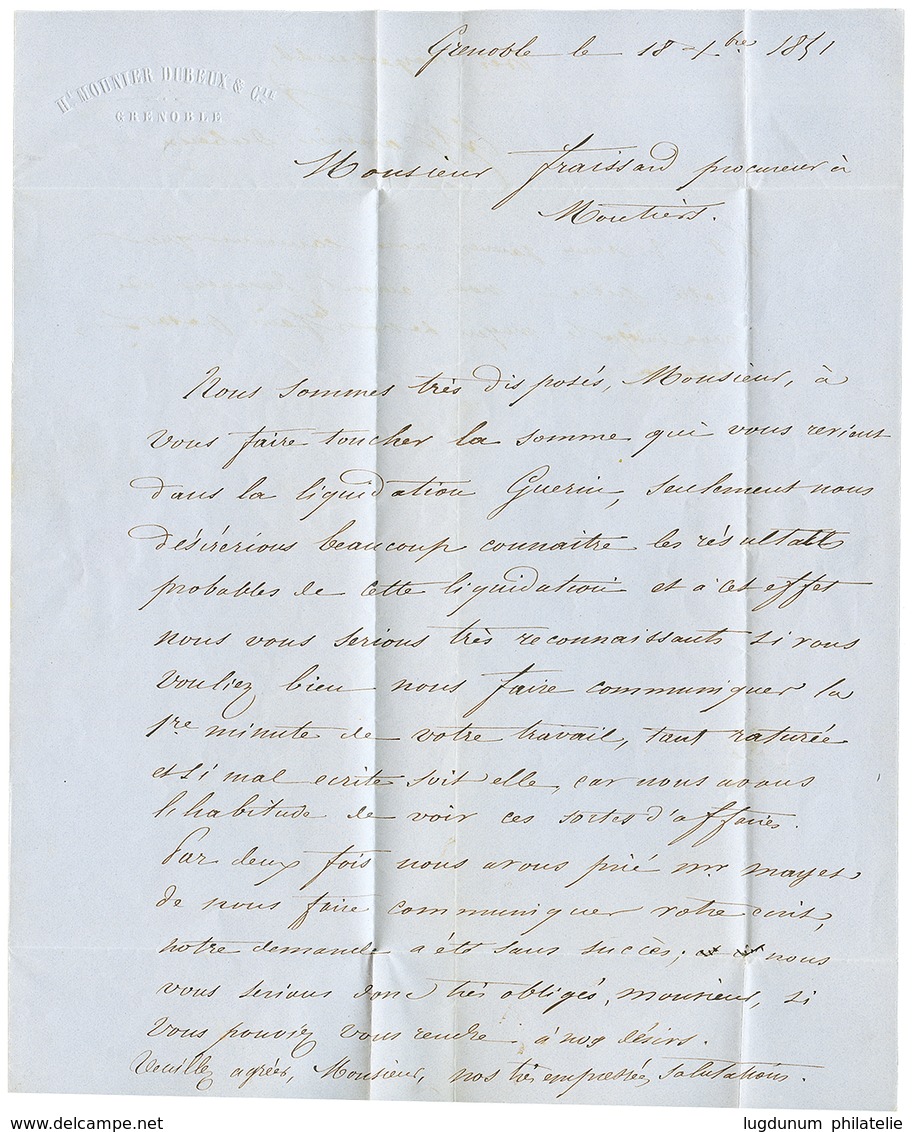 Grenoble le 18 7bre 1851
Hri MOUNIER DUBEUX & Cie
GRENOBLE
Monsieur Fraissard procureur à
Moutiers.
Nous sommes très disposés, Monsieur, à
vous faire toucher la somme qui vous revient
dans la liquidation Guerin, seulement nous
désirerions beaucoup connaitre les résultats
probables de cette liquidation et à cet effet
nous vous serions très reconnaissants si vous
vouliez bien nous faire communiquer la
1re minute de votre travail, tant raturée
et si mal ecrite soit elle, car nous avons
l'habitude de voir ces sortes d'affaires.
Par deux fois nous avons prié mr mayet
de nous faire communiquer votre ecrit,
notre demande a été sans succès; nous
vous serions donc très obligés, monsieur, si
vous pouviez vous rendre à nos désirs.
Veuillez agréer, Monsieur, nos très empressées salutations.
lugdunum philatelie